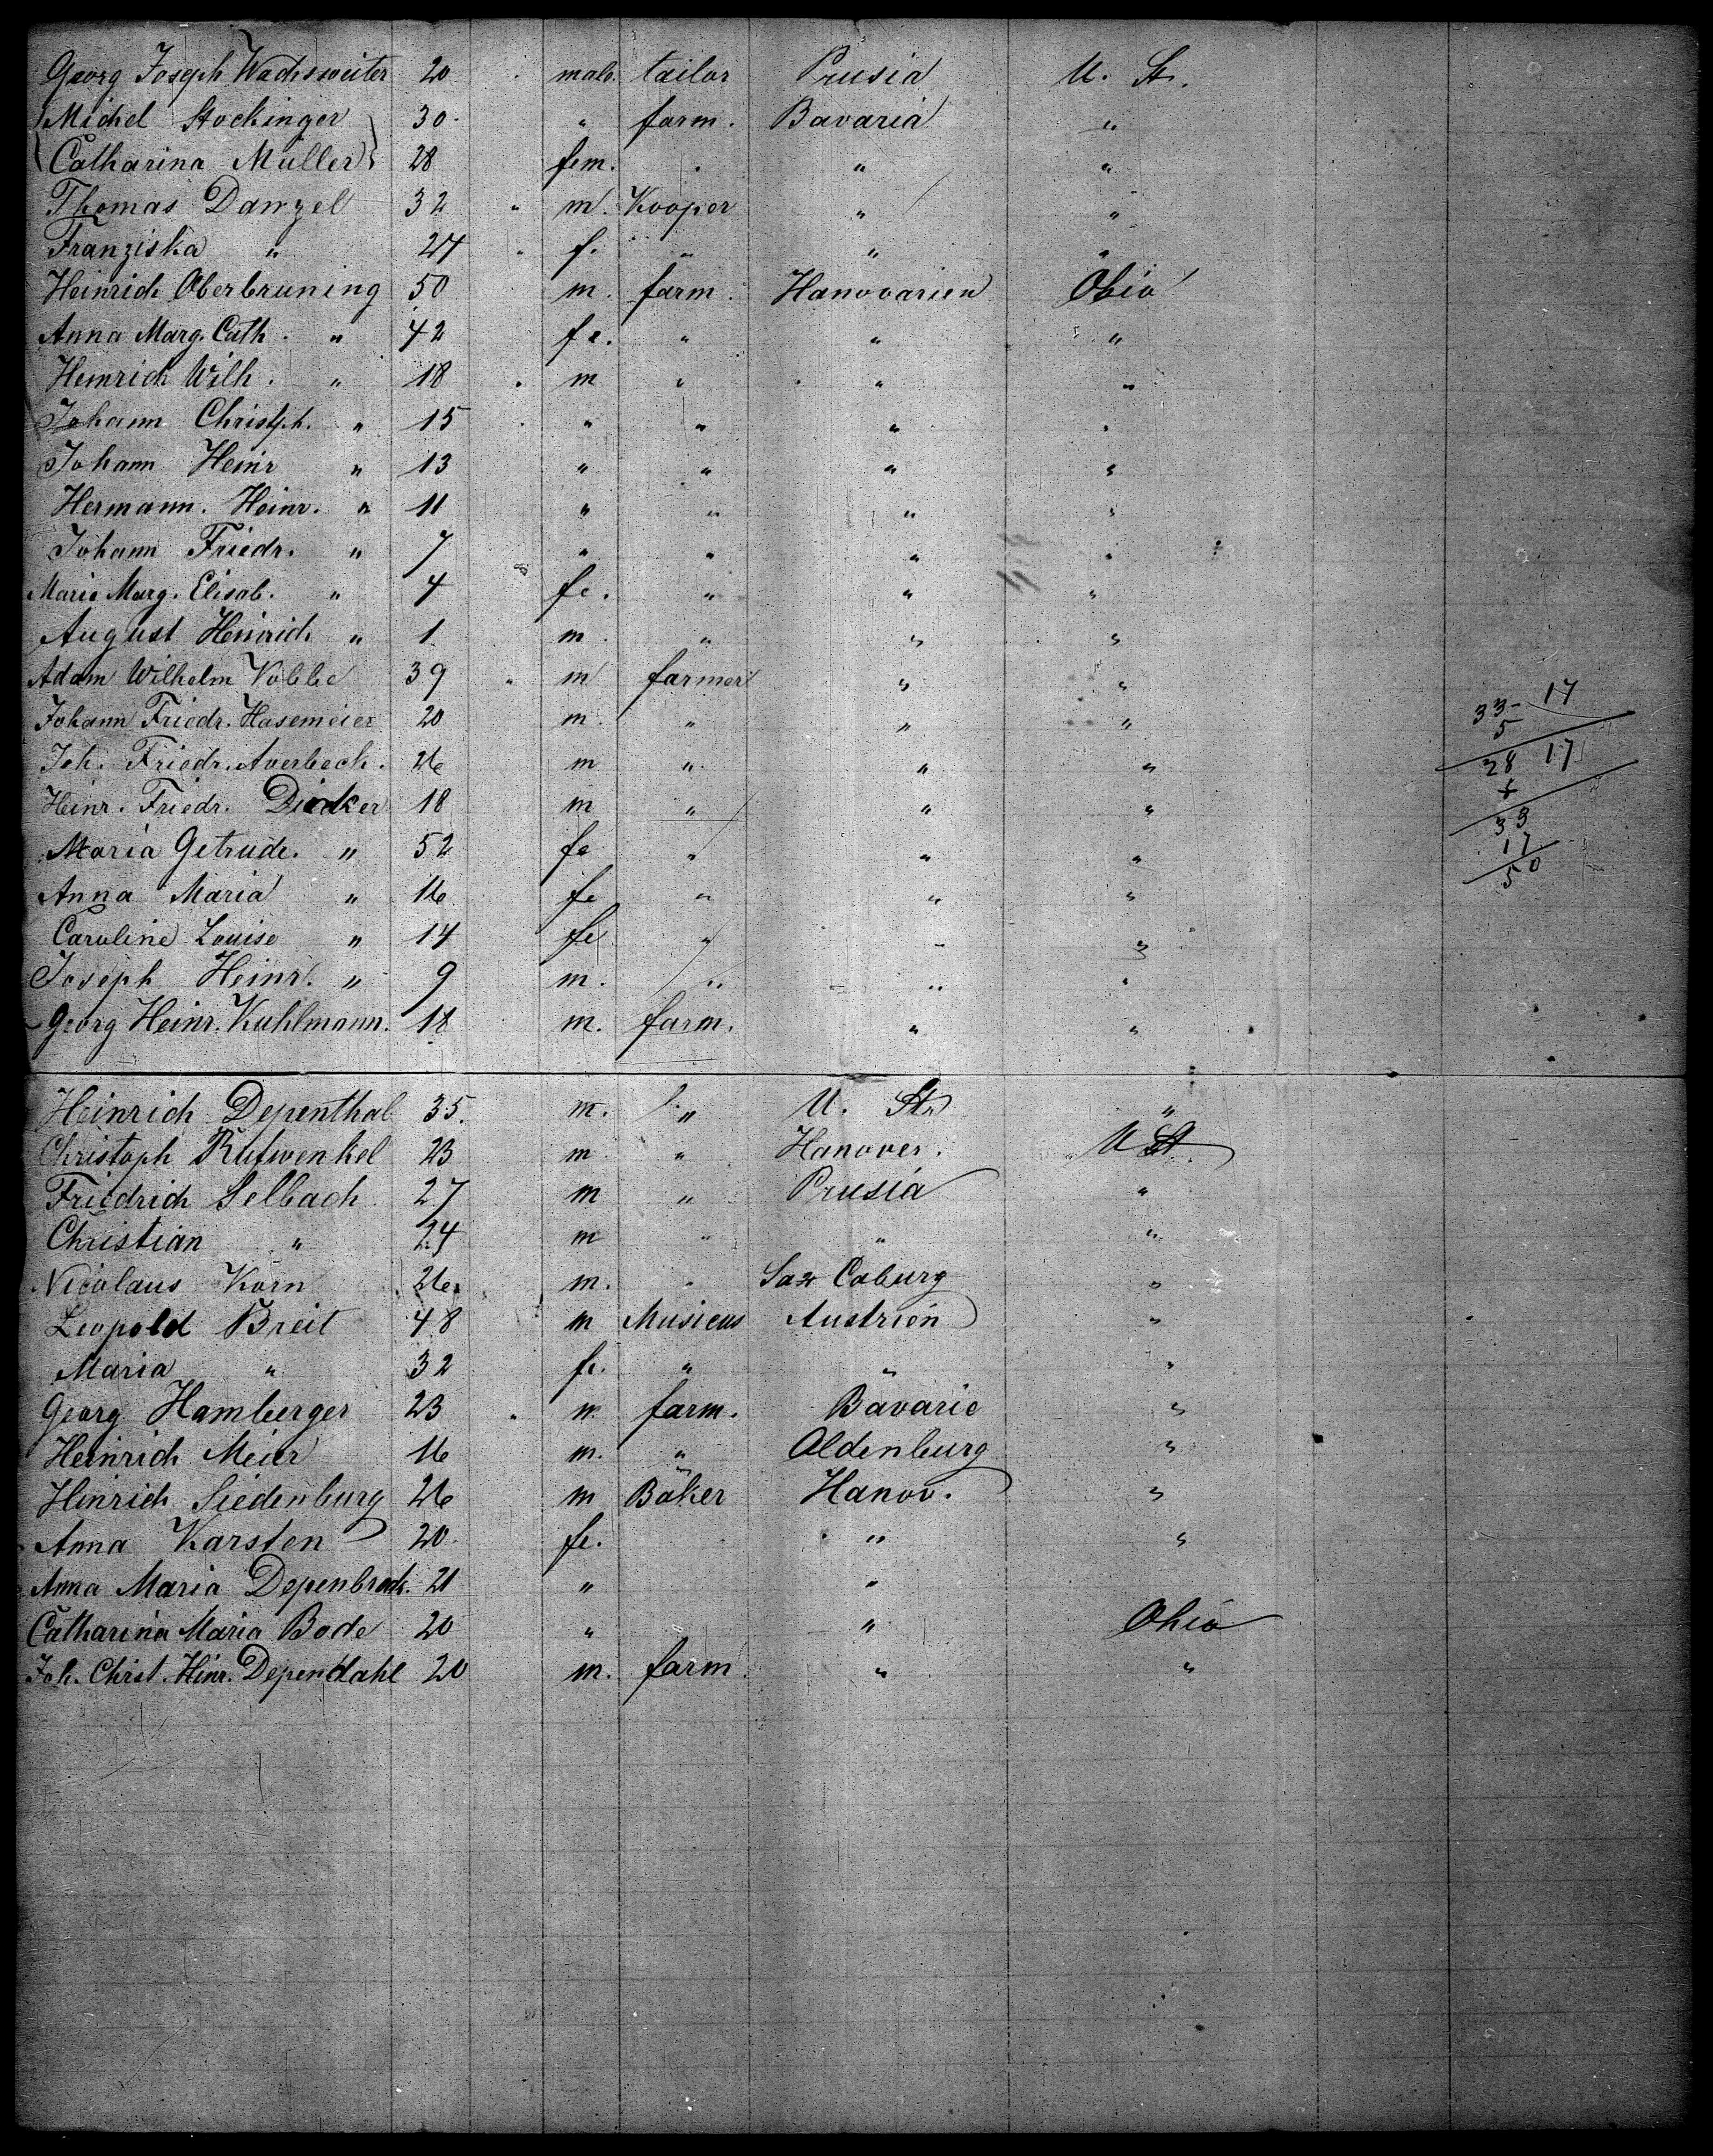 Georg Joseph Wachsweiter 20 male. tailor Prusia U. St.
Michel Stockinger 30 " farm. Bavaria "
Catharina Müller 28 fem. " " "
Thomas Danzel 32 m. Kooper " "
Franziska " 24 f. " " "
Heinrich Oberbruning 50 m. farm. Hanovarien Ohio
Anna Marg. Cath. " 42 fe. " " "
Heinrich Wilh. " 18 m " " "
Johann Christph. " 15 " " " "
Johann Heinr " 13 " " " "
Hermann. Heinr. " 11 " " " "
Johann Friedr. " 7 " " " "
Marie Marg. Elisab. " 4 fe. " " "
August Heinrich " 1 m. " " "
Adam Wilhelm Kobbe 39 m farmer " "
Johann Friedr. Hasemeier 20 m. " " "
33- 17
5
Joh. Friedr. Averbeck. 26 m " " "
28 17
Heinr. Friedr. Dierker 18 m " " "
33
Maria Getrude. " 52 fe " " "
17
50
Anna Maria " 16 fe " " "
Caroline Louise " 14 fe " " "
Joseph Heinr. " 9 m. " " "
Georg Heinr. Kuhlmann. 18 m. farm. " "
Heinrich Depenthal 35. m. " U. St. "
Christoph Rufwenkel 23 m " Hanover. U St.
Friedrich Selbach 27 m " Prusia "
Christian " 24 m " " "
Nicolaus Korn 26 m. " Sax Coburg "
Leopold Breit 48 m Musicus Austrien "
Maria " 32 fe. " " "
Georg Hamberger 23 m. farm. Bavarie "
Heinrich Meier 16 m. " Oldenburg "
Hinrich Siedenburg 26 m Bäker Hanov. "
Anna Karsten 20. fe. " "
Anna Maria Depenbrock. 21 " "
Catharina Maria Bode 20 " " Ohio
Joh. Christ. Hinr. Dependahl 20 m. farm. " "